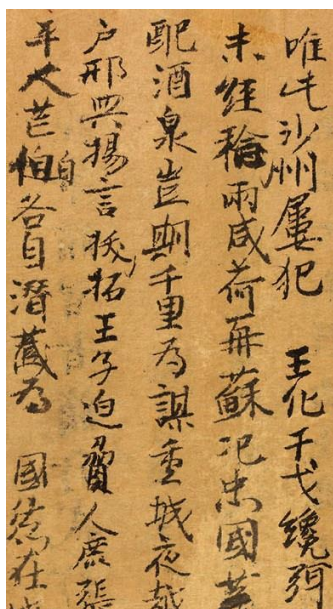 唯沙州屢犯 王化干戈纔
未經雨咸荷再蘇氾忠國
配酒泉豈期千里為謀重城夜越
戶邢興揚言拓王子迫脅人鹿張
平人芒怕各自潛藏為 國在